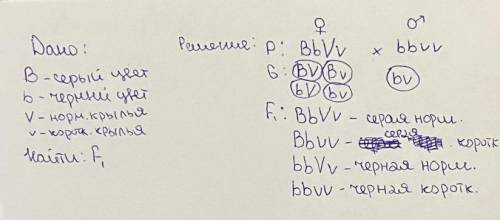 Дано:
B - серый цвет
b - черный цвет
V - норм. крылья
v - коротк. крылья
Найти: F₁
Решение:
♀ ♂
P: BbVv × bbvv
G: BV Bv bv
bV bv
F₁: BbVv - серая норм.
Bbvv - серая коротк.
bbVv - черная норм.
bbvv - черная коротк.